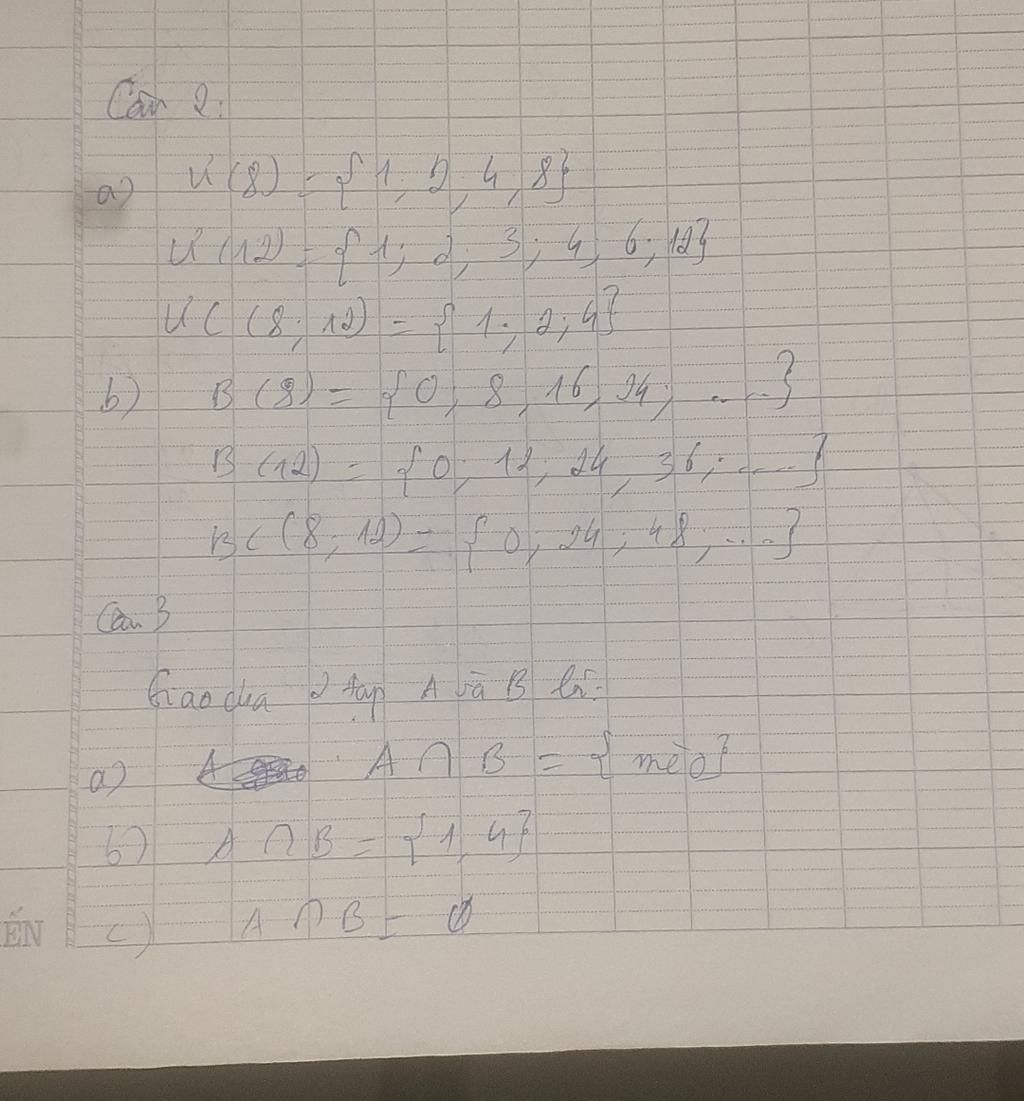 Câu 2:
a) Ư(8) = {1; 2; 4; 8}
Ư(12) = {1; 2; 3; 4; 6; 12}
ƯC (8; 12) = {1; 2; 4}
b) B (8) = {0; 8; 16; 24; ....}
B (12) = {0; 12; 24; 36; ....}
BC (8; 12) = {0; 24; 48; ....}
Câu 3
Giao của 2 tập A và B là:
a) A ∩ B = {mèo}
b) A ∩ B = {1, 4}
c) A ∩ B = ∅
ẾN